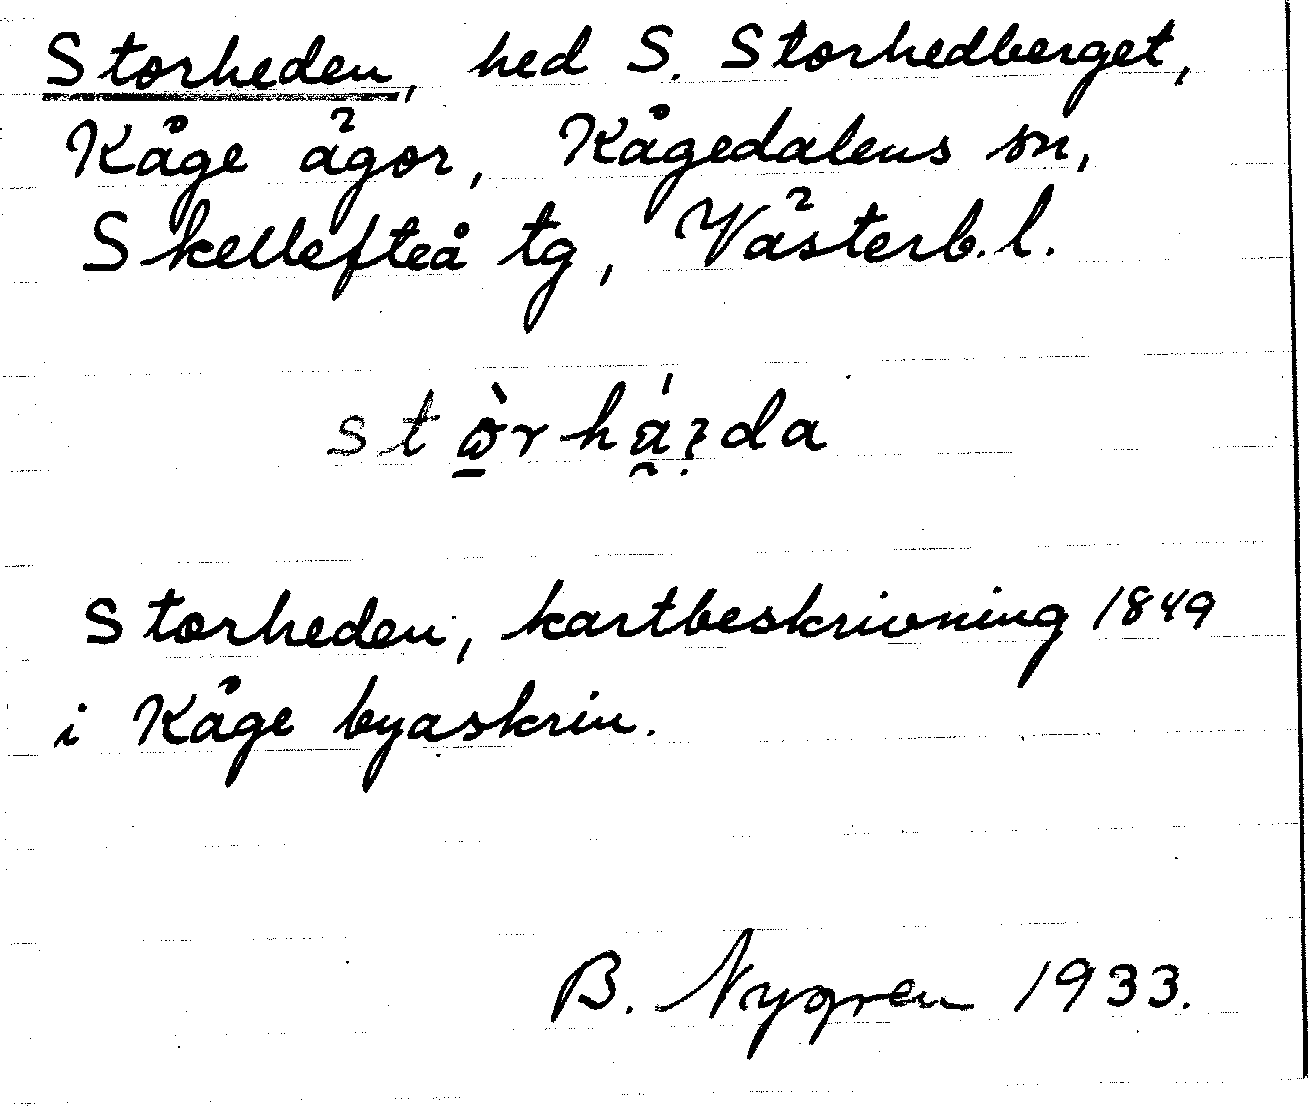 Storheden, hed S. Storhedberget,
Kåge ägor, Kågedalens sn,
Skellefteå tg, Västerb. l.
Storheden, kartbeskrivning 1849
i Kåge byaskrin.
B. Nygren 1933.